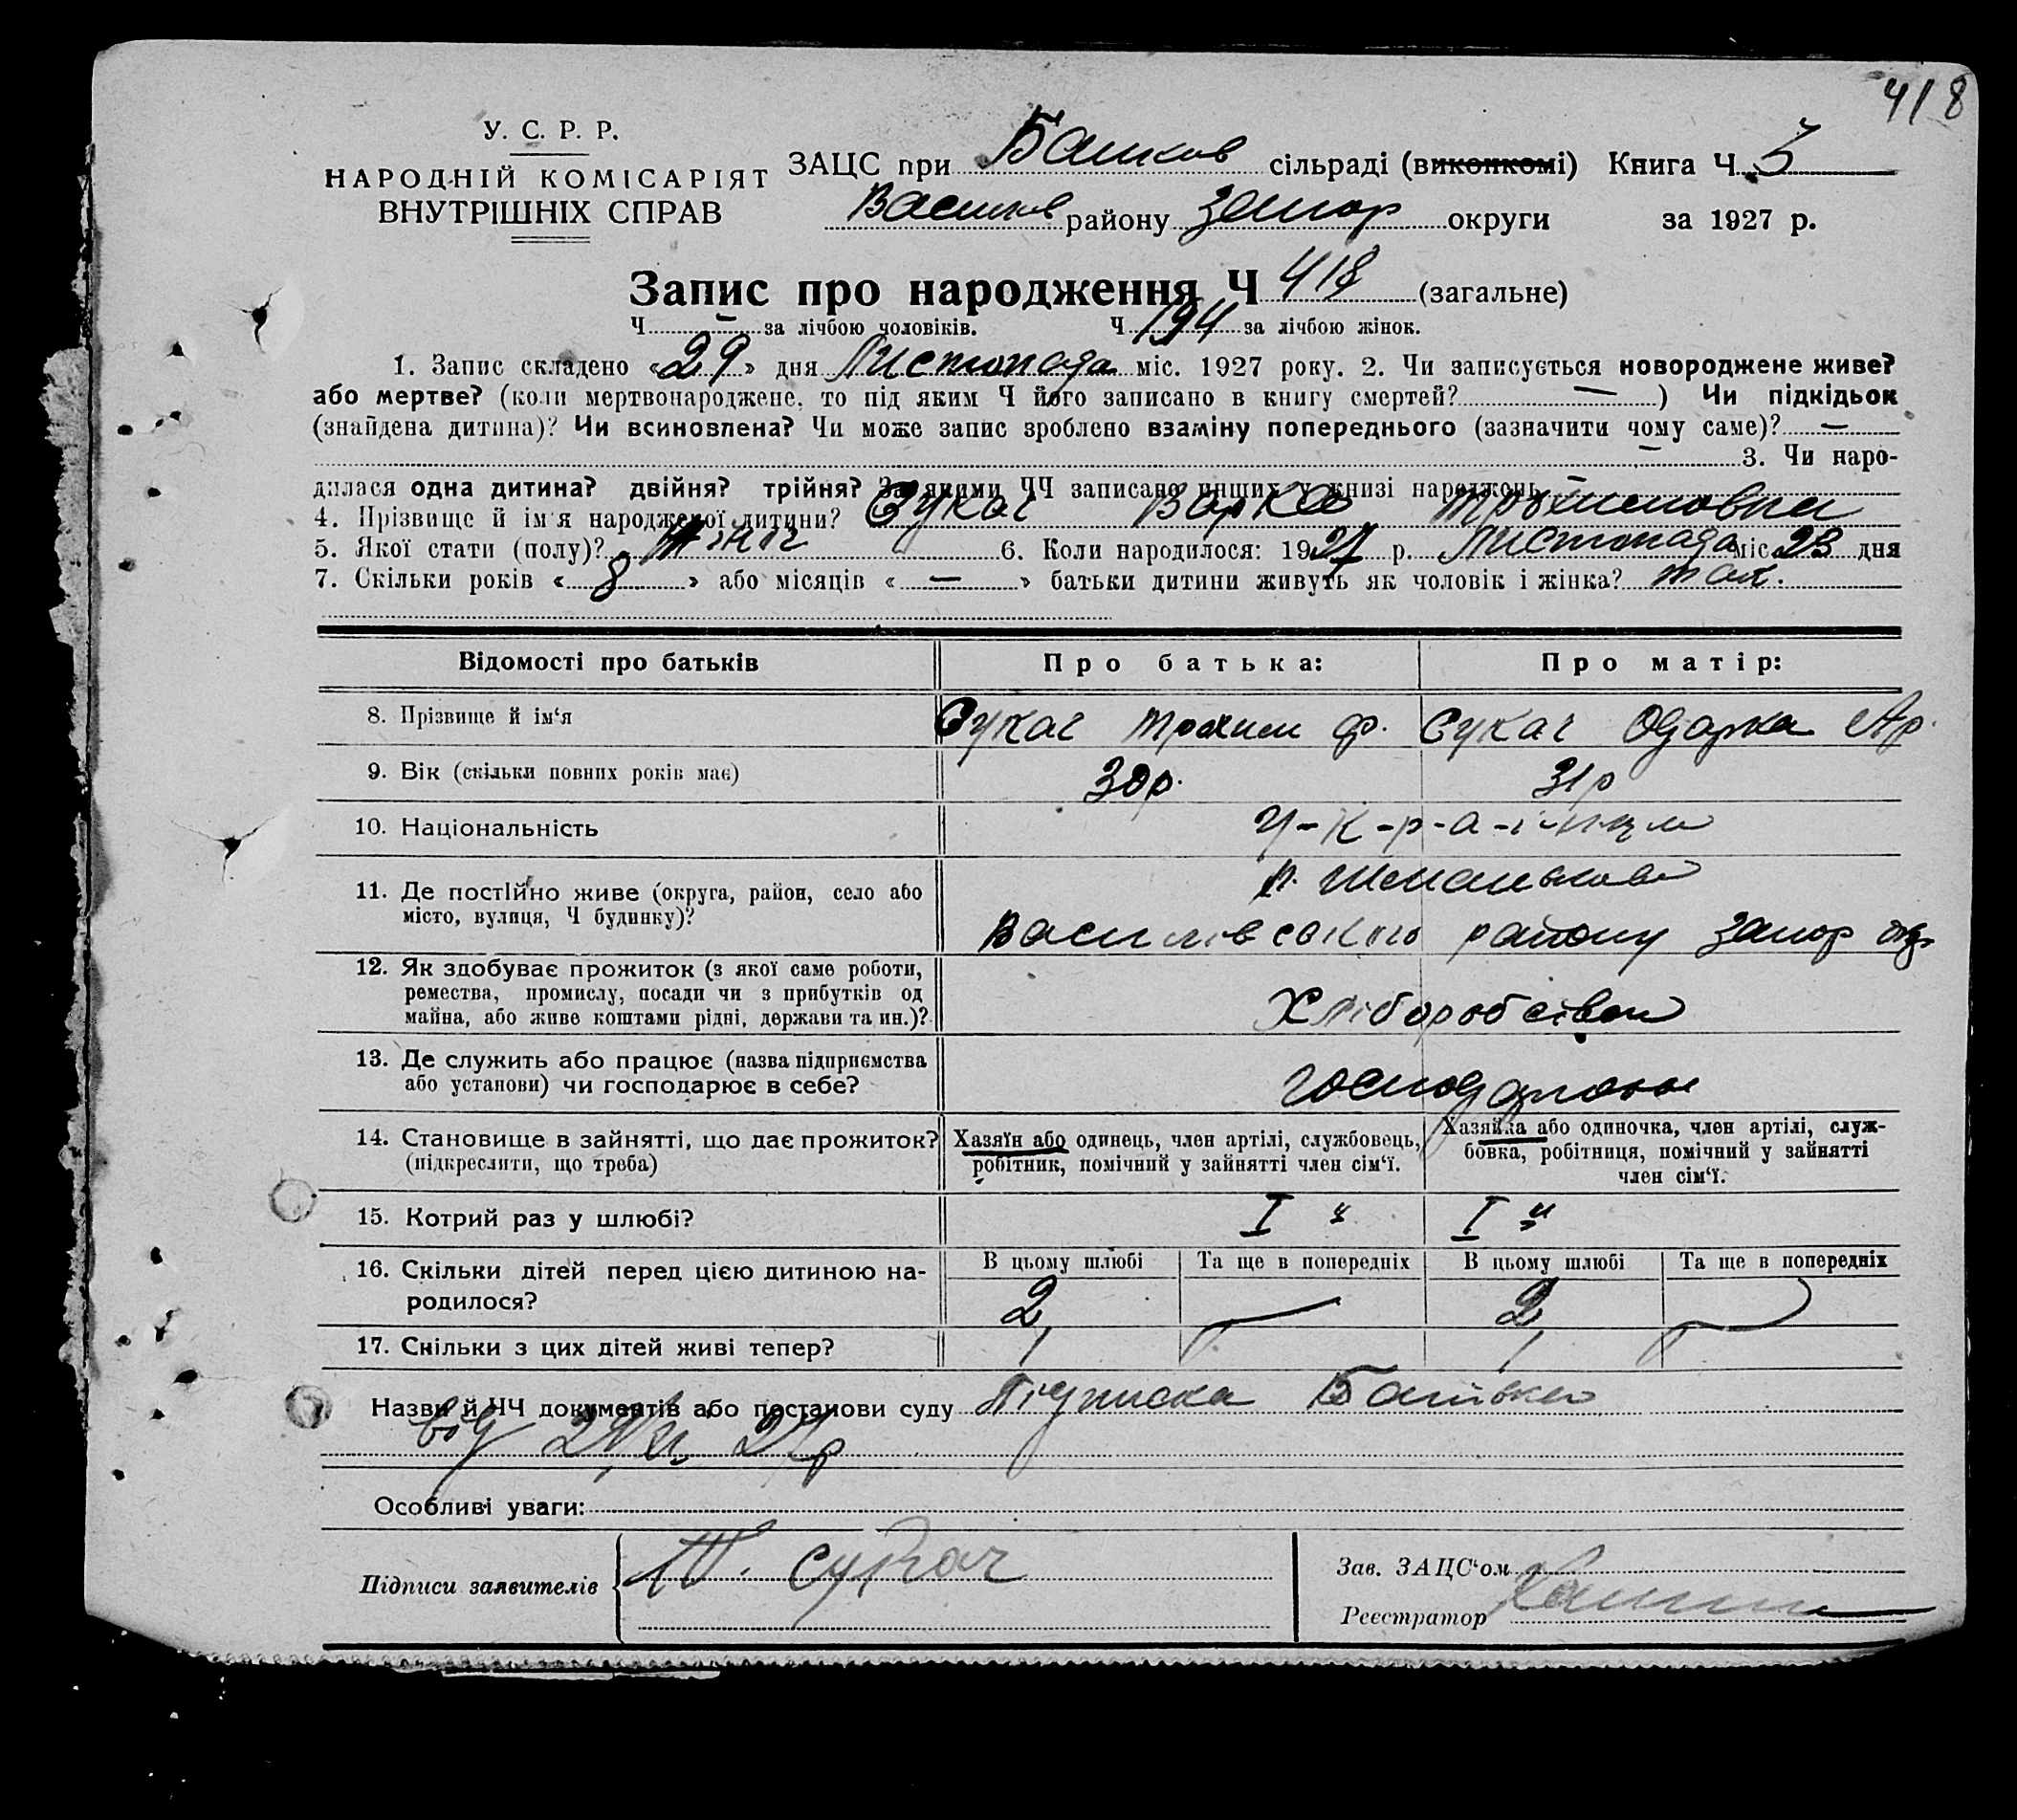 418
У. С. Р. Р.
НАРОДНІЙ КОМІСАРІЯТ
ВНУТРІШНІХ СПРАВ
ЗАЦС при сільраді (виконкомі) Книга Ч. 3
району Запор округи за 1927 р.
Запис про народження Ч 418 (загальне)
Ч — за лічбою чоловіків. Ч 194 за лічбою жінок.
1. Запис складено «29» дня Листопада міс. 1927 року. 2. Чи записується новороджене живе?
або мертве? (коли мертвонароджене, то під яким Ч його записано в книгу смертей? — ) Чи підкідьок
(знайдена дитина)? Чи всиновлена? Чи може запис зроблено взаміну попереднього (зазначити чому саме)? —
— 3. Чи наро-
дилася одна дитина? двійня? трійня? За якими ЧЧ записано инших у книзі народжень —
4. Прізвище й ім'я народженої дитини? Сукач Варка
5. Якої стати (полу)? 6. Коли народилося: 1927 р. Листопада міс. 23 дня
7. Скільки років «8» або місяців « — » батьки дитини живуть як чоловік і жінка? так.
Відомості про батьків Про батька: Про матір:
8. Прізвище й ім'я Сукач Трохим Ф. Сукач Одарка Ар.
9. Вік (скільки повних років має) 30р. 31р
10. Національність У-к-р-а-ї-нци
11. Де постійно живе (округа, район, село або
місто, вулиця, Ч будинку)?
Василівського району Запор окр
12. Як здобуває прожиток (з якої саме роботи,
ремества, промислу, посади чи з прибутків од
майна, або живе коштами рідні, держави та ин.)?
Хліборобством
13. Де служить або працює (назва підприємства
або установи) чи господарює в себе?
14. Становище в зайнятті, що дає прожиток?
(підкреслити, що треба)
Хазяїн або одинець, член артілі, службовець,
робітник, помічний у зайнятті член сім'ї.
Хазяйка або одиночка, член артілі, служ-
бовка, робітниця, помічний у зайнятті
член сім'ї.
15. Котрий раз у шлюбі? I й I й
16. Скільки дітей перед цією дитиною на-
родилося?
В цьому шлюбі Та ще в попередніх В цьому шлюбі Та ще в попередніх
2 — 2 —
17. Скільки з цих дітей живі тепер? 1 1
Назви й ЧЧ документів або постанови суду Підписка Батька
від
Особливі уваги:
Підписи заявителів Т. Сукач
Зав. ЗАЦС'ом
Реєстратор